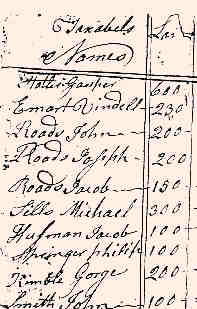 Taxabels
Names
Hatler Gasper 600
Emart Rindelt 230
Roads John 200
Roads Joseph 200
Roads Jacob 150
Sills Michael 300
Hufman Jacob 100
Springer philip 100
Kimble Gorge 200
Smith John 100